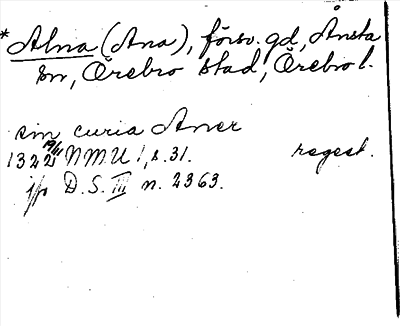 *Alna (Ana), försv. gd, Ånsta
sn, Örebro stad, Örebro l.
sin curia Aner
1322 19/11 NMU 1, s. 31. regest.
jfr D. S. III n. 2363.